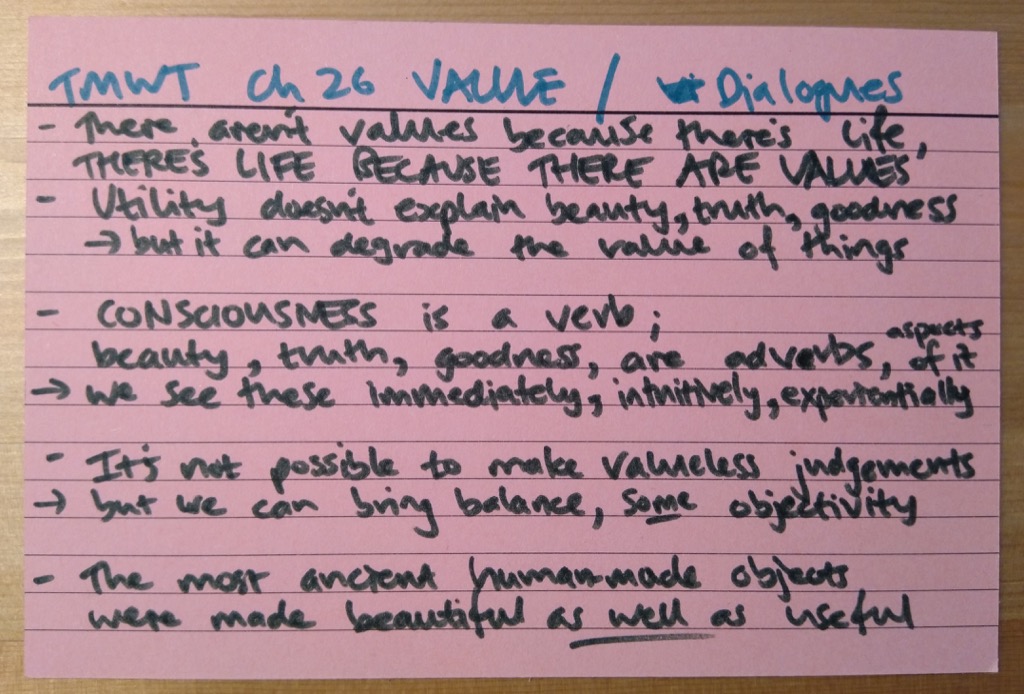 TMWT Ch 26 VALUE / Dialogues
- There aren't values because there's life,
THERE'S LIFE BECAUSE THERE ARE VALUES
- Utility doesn't explain beauty, truth, goodness
→ but it can degrade the value of things
- CONSCIOUSNESS is a verb;
beauty, truth, goodness, are adverbs, aspects of it
→ we see these immediately, intuitively, experientially
- It's not possible to make valueless judgements
→ but we can bring balance, some objectivity
- The most ancient human-made objects
were made beautiful as well as useful